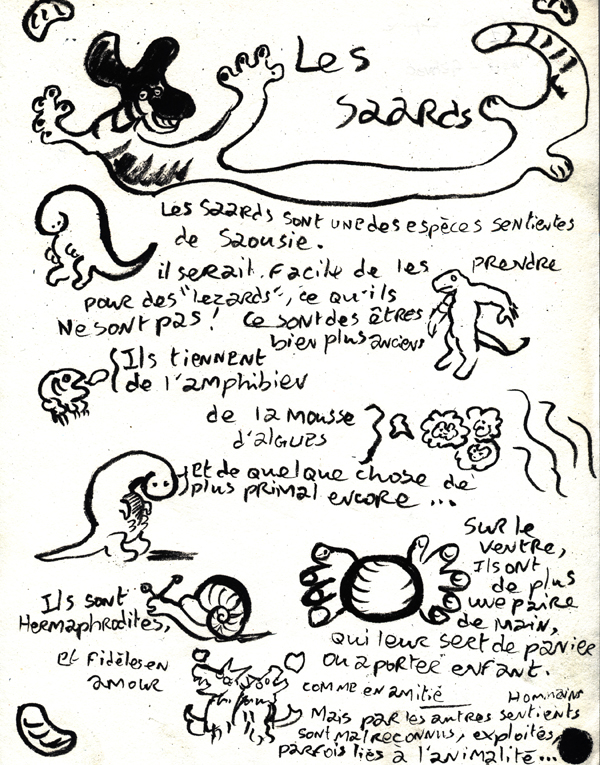 Les
Saards
Les Saards sont une des espèces sentientes
de Saousie.
il serait facile de les prendre
pour des "lezards", ce qu'ils
Ne sont pas! ce sont des êtres
bien plus anciens
Ils tiennent
de l'amphibien
de la mousse
d'algues
et de quelque chose de
plus primal encore...
Sur le
ventre,
Ils ont
de plus
une paire
de main,
qui leur sert de panier
ou a porter enfant.
Ils sont
Hermaphrodites,
et fidèles en
amour
comme en amitié
Mais par les autres sentients
sont mal reconnus, exploités,
parfois liés à l'animalité...